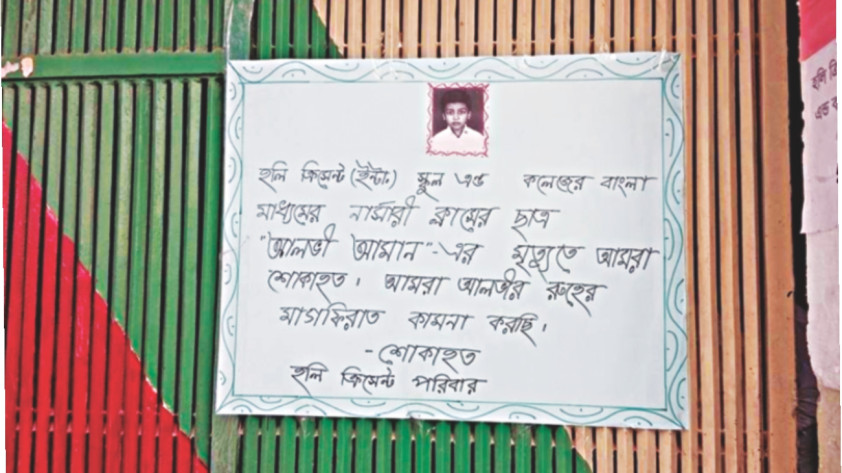 হলি ক্রিসেন্ট (ইন্টা:) স্কুল এন্ড কলেজের বাংলা
মাধ্যমের নার্সারী ক্লাসের ছাত্র
"আলভী আমান"-এর মৃত্যুতে আমরা
শোকাহত। আমরা আলভীর রুহের
মাগফিরাত কামনা করছি।
-শোকাহত
হলি ক্রিসেন্ট পরিবার
হলি
এন্ড